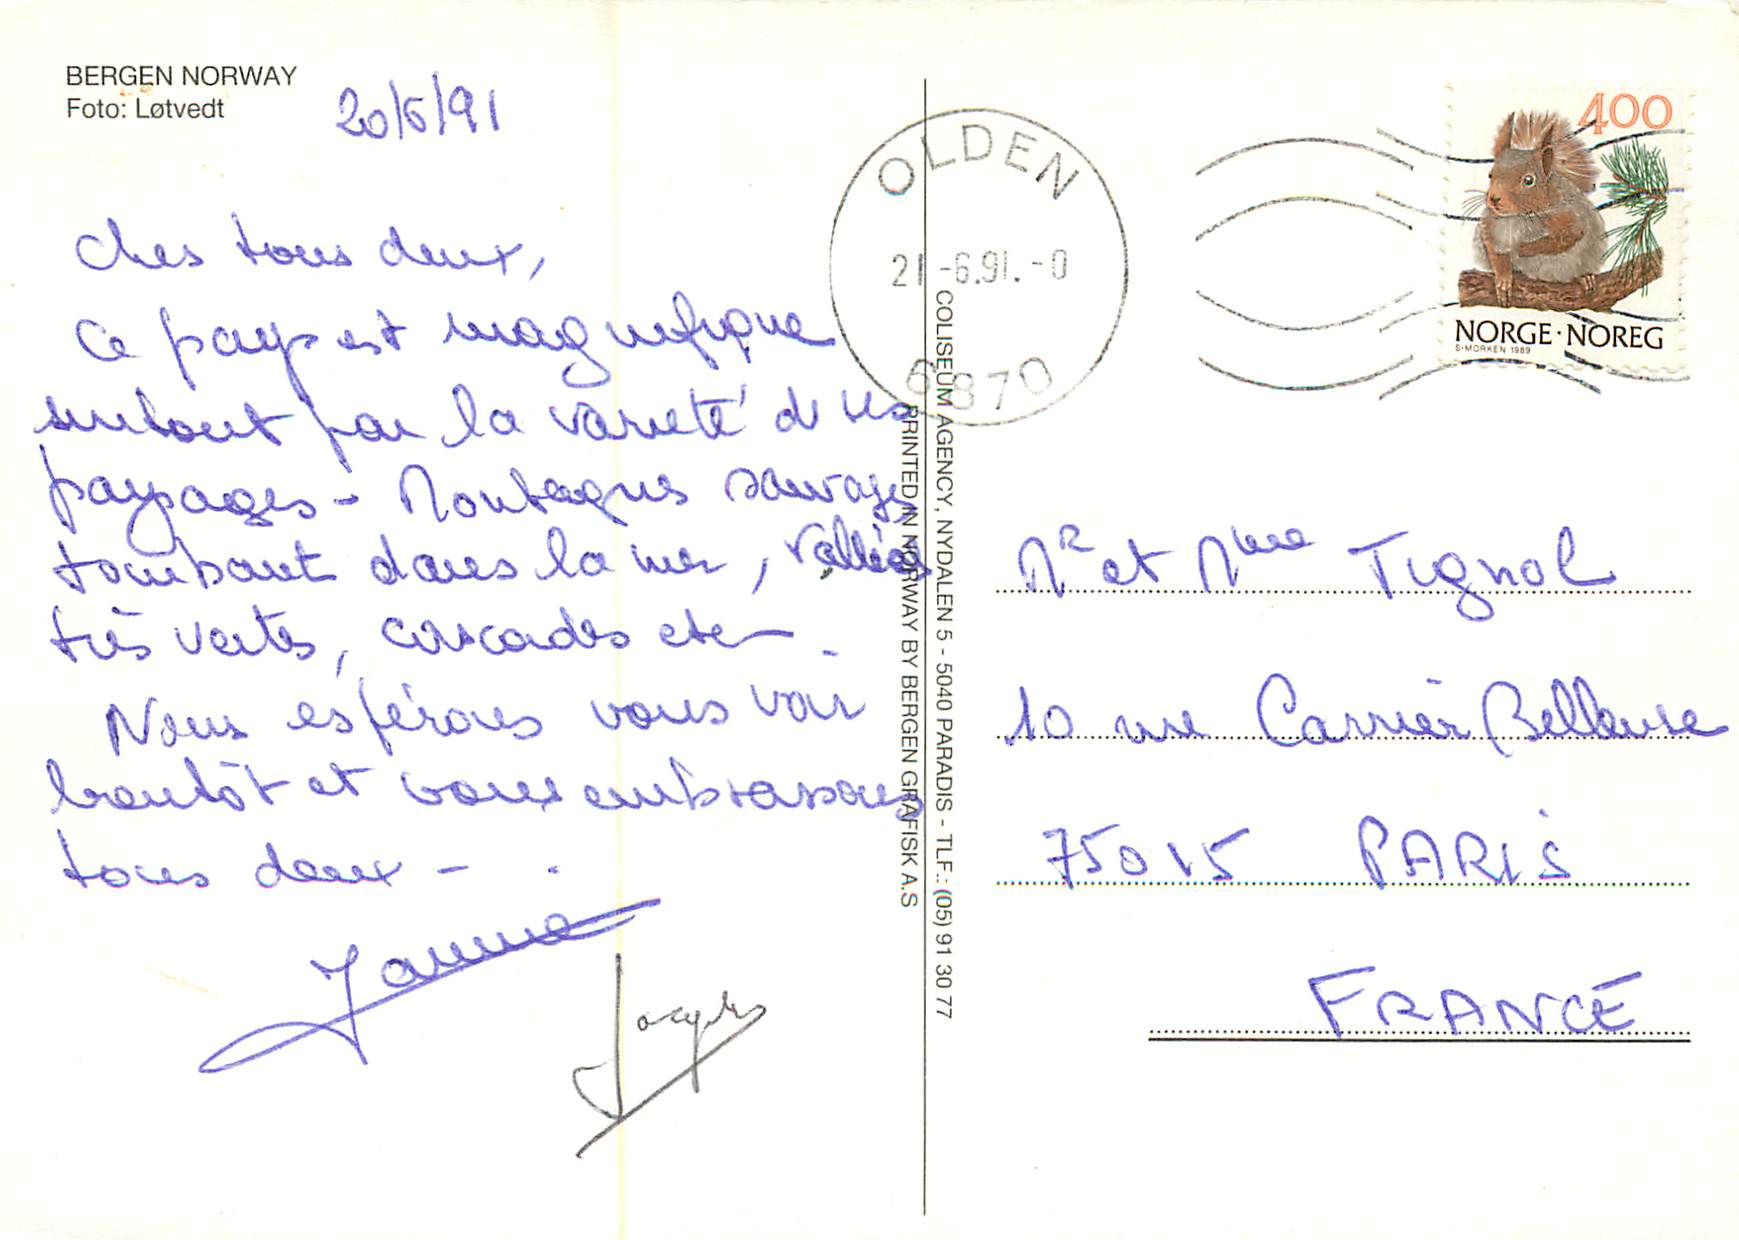 BERGEN NORWAY
Foto: Løtvedt
20/6/91
Chers tous deux,
Ce pays est magnifique
surtout par la varieté de ses
paysages - Montagnes sauvages
tombant dans la mer, vallées
très vertes, cascades etc -.
Nous espérons vous voir
bientôt et vous embrassons
tous deux -.
Jacques
OLDEN
21-6.91.-0
6870
COLISEUM AGENCY, NYDALEN 5 - 5040 PARADIS - TLF.: (05) 91 30 77
PRINTED IN NORWAY BY BERGEN GRAFISK A.S
400
NORGE·NOREG
S·MORKEN 1989
Mr et Mme Tignol
10 rue Carrier Belleuse
75015 PARIS
FRANCE